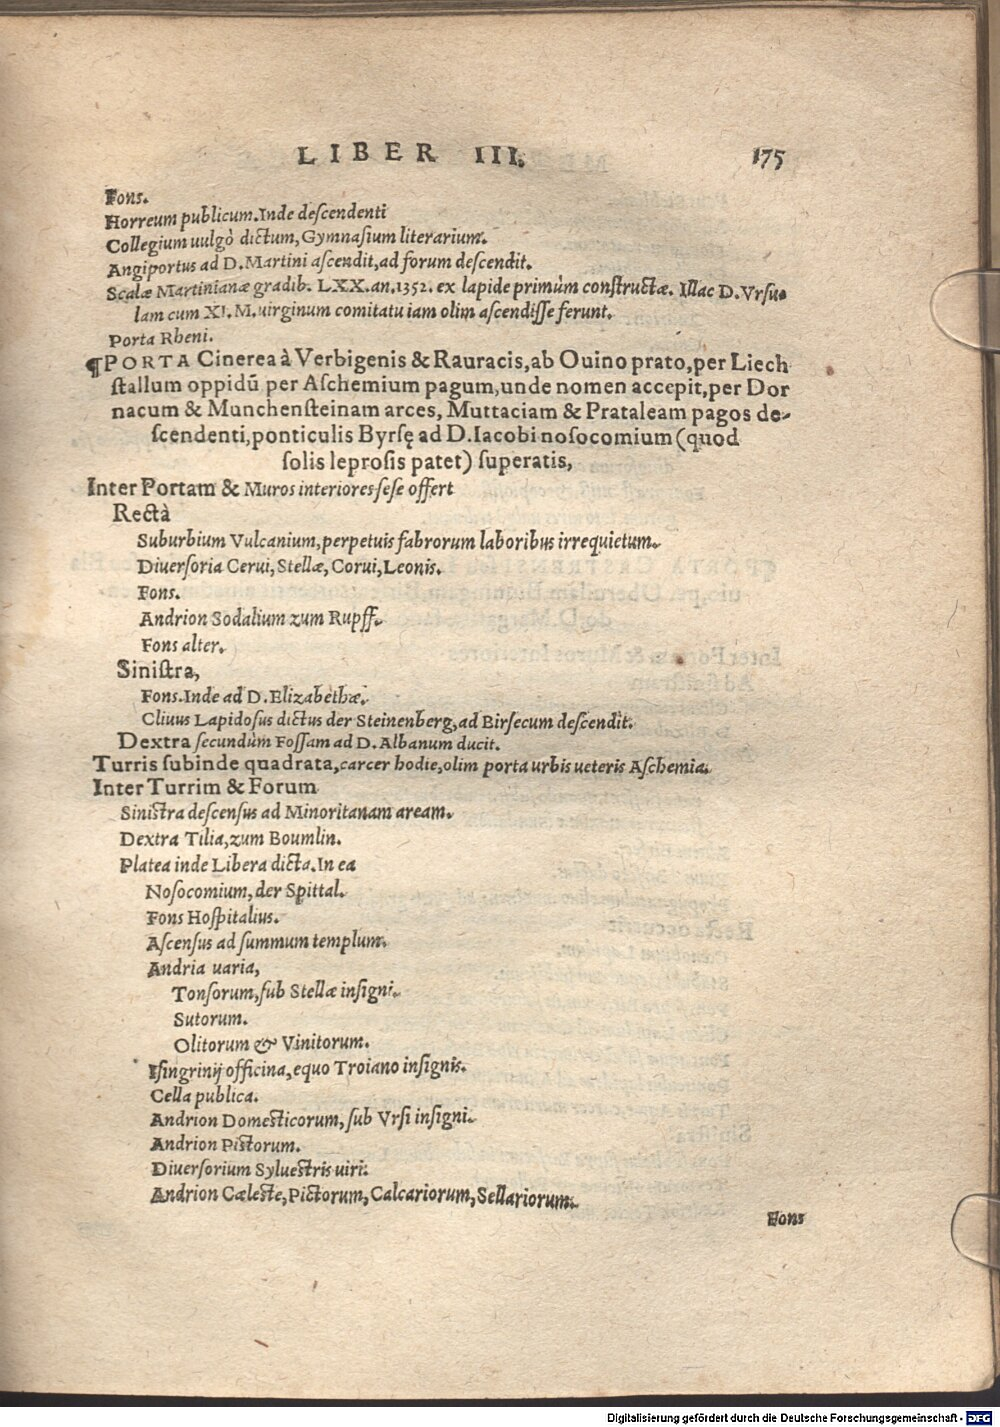 LIBER III. 175
Fons.
Horreum publicum. Inde descendenti
Collegium uulgò dictum, Gymnasium literarium.
Angiportus ad D. Martini ascendit, ad forum descendit.
Scalæ Martinianæ gradib. LXX. an. 1352. ex lapide primùm constructæ. Illac D. Vrsu-
lam cum XI. M. uirginum comitatu iam olim ascendisse ferunt.
Porta Rheni.
¶PORTA Cinerea à Verbigenis & Rauracis, ab Ouino prato, per Liech
stallum oppidū per Aschemium pagum, unde nomen accepit, per Dor
nacum & Munchensteinam arces, Muttaciam & Prataleam pagos de-
scendenti, ponticulis Byrsę ad D. Iacobi nosocomium (quod
solis leprosis patet) superatis,
Inter Portam & Muros interiores sese offert
Rectà
Suburbium Vulcanium, perpetuis fabrorum laboribus irrequietum.
Diuersoria Cerui, Stellæ, Corui, Leonis.
Fons.
Andrion Sodalium zum Rupff.
Fons alter.
Sinistra,
Fons. Inde ad D. Elizabethæ.
Cliuus Lapidosus dictus der Steinenberg, ad Birsecum descendit.
Dextra secundùm Fossam ad D. Albanum ducit.
Turris subinde quadrata, carcer hodie, olim porta urbis ueteris Aschemia.
Inter Turrim & Forum
Sinistra descensus ad Minoritanam aream.
Dextra Tilia, zum Boumlin.
Platea inde Libera dicta. In ea
Nosocomium, der Spittal.
Fons Hospitalius.
Ascensus ad summum templum.
Andria uaria,
Tonsorum, sub Stellæ insigni.
Sutorum.
Olitorum & Vinitorum.
Isingrinij officina, equo Troiano insignis.
Cella publica.
Andrion Domesticorum, sub Vrsi insigni.
Andrion Pistorum.
Diuersorium Syluestris uiri.
Andrion Cæleste, Pictorum, Calcariorum, Sellariorum.
Fons
Digitalisierung gefördert durch die Deutsche Forschungsgemeinschaft - DFG